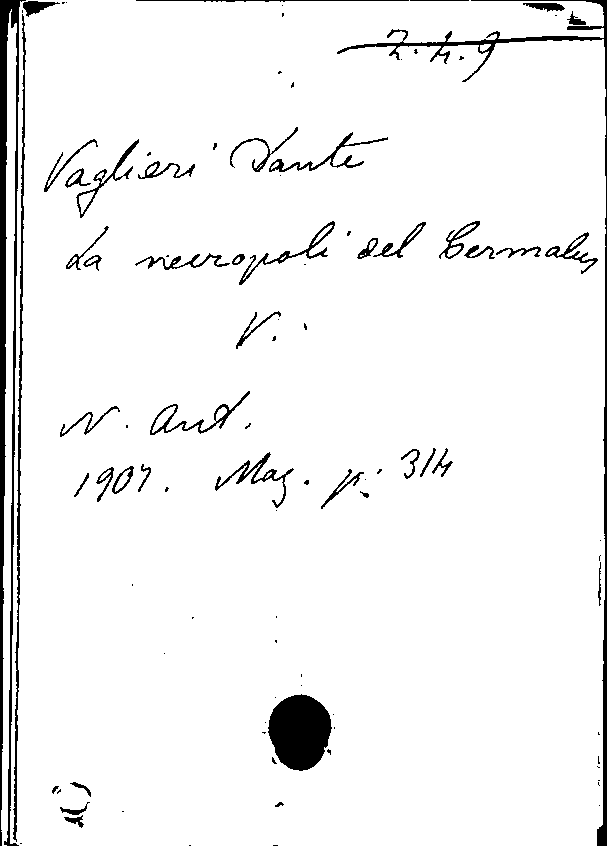 2.4.9
Vaglieri Dante
La necropoli del Cermalus
V.
N. Ant.
1907. Mag. p. 314